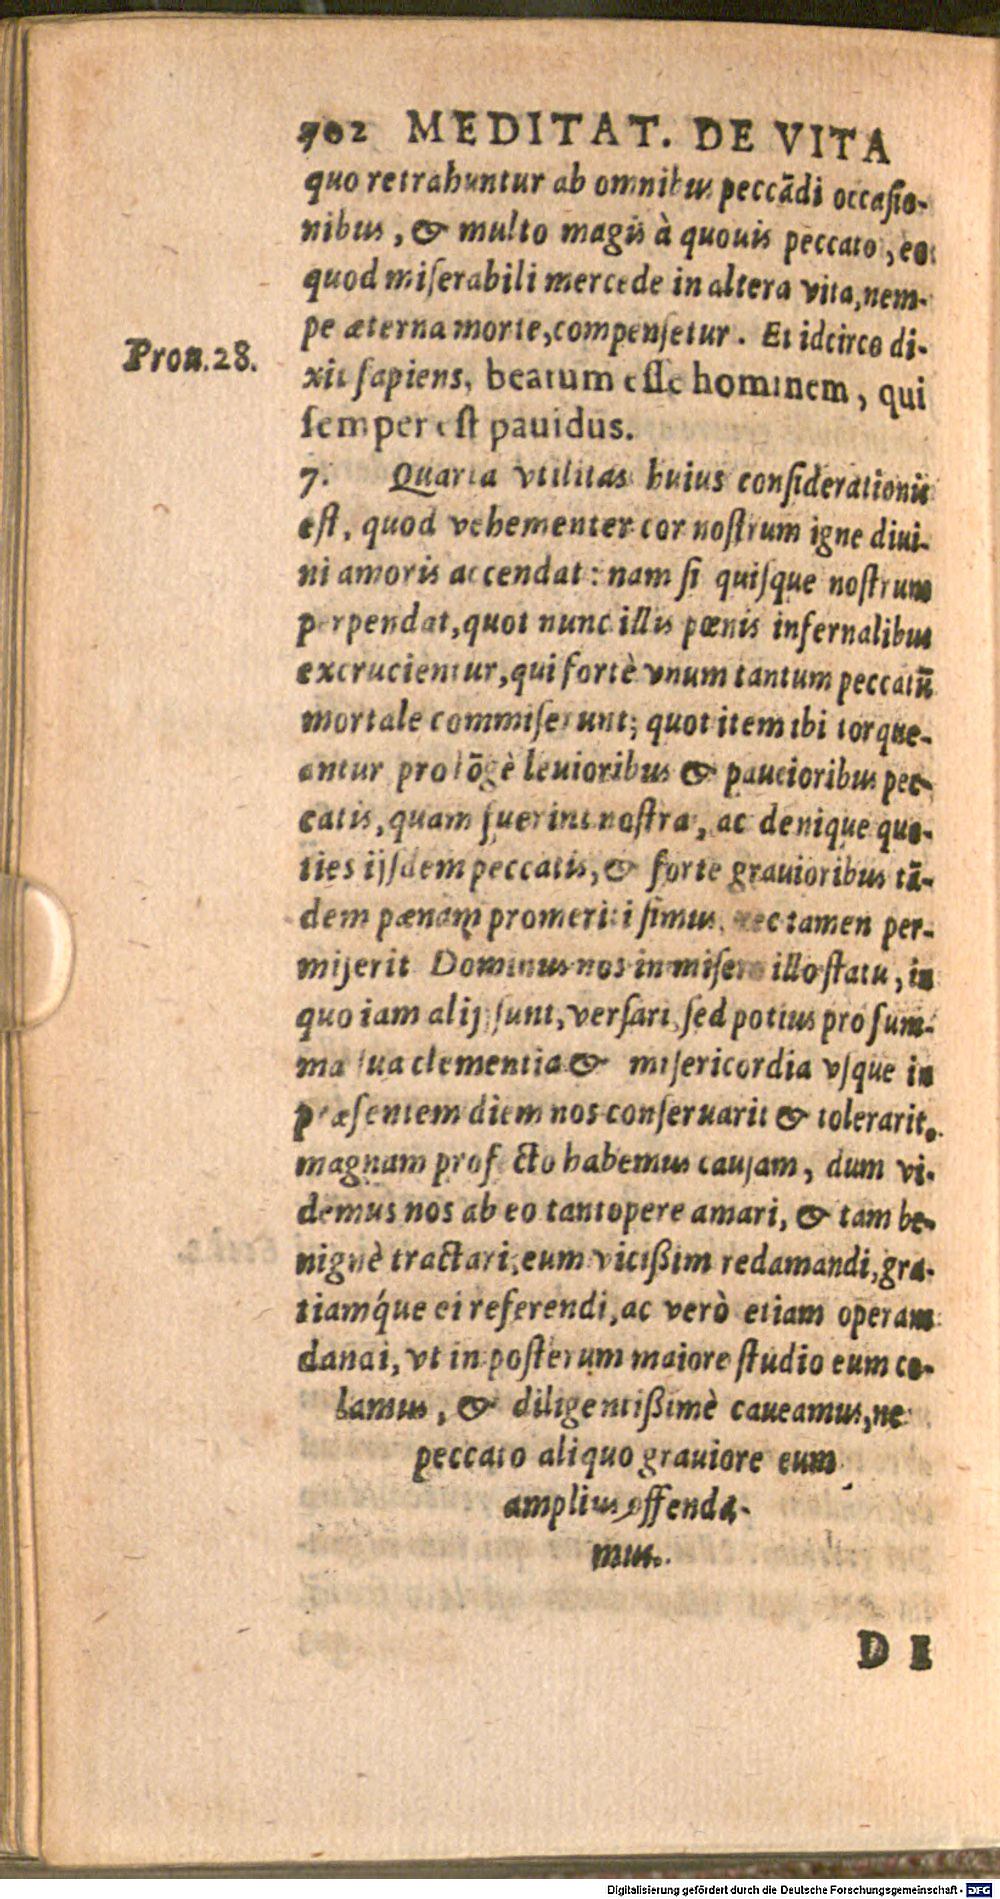 702 MEDITAT. DE VITA
quo retrahuntur ab omnibus peccādi occasio-
nibus, & multo magis à quouis peccato, eo
quod miserabili mercede in altera vita, nem-
pe æterna morte, compensetur. Et idcirco di-
Prou. 28.
xit sapiens, beatum esse hominem, qui
semper est pauidus.
7. Quarta vtilitas huius considerationis
est, quod vehementer cor nostrum igne diui-
ni amoris accendat: nam si quisque nostrum
perpendat, quot nunc illis pœnis infernalibus
excrucientur, qui fortè vnum tantum peccatū
mortale commiserunt; quot item ibi torque-
antur pro lōgè leuioribus & paucioribus pec-
catis, quam fuerint nostra, ac denique quo-
ties ijsdem peccatis, & forte grauioribus tā-
dem pænam promeriti simus, nec tamen per-
miserit Dominus nos in misero illo statu, in
quo iam alij sunt, versari, sed potius pro sum-
ma sua clementia & misericordia vsque in
præsentem diem nos conseruarit & tolerarit,
magnam profecto habemus causam, dum vi-
demus nos ab eo tantopere amari, & tam be-
nignè tractari, eum vicißim redamandi, gra-
tiamq́ue ei referendi, ac verò etiam operam
danai, vt in posterum maiore studio eum co-
lamus, & diligentißimè caueamus, ne
peccato aliquo grauiore eum
amplius offenda-
mus.
DE
Digitalisierung gefördert durch die Deutsche Forschungsgemeinschaft - DFG